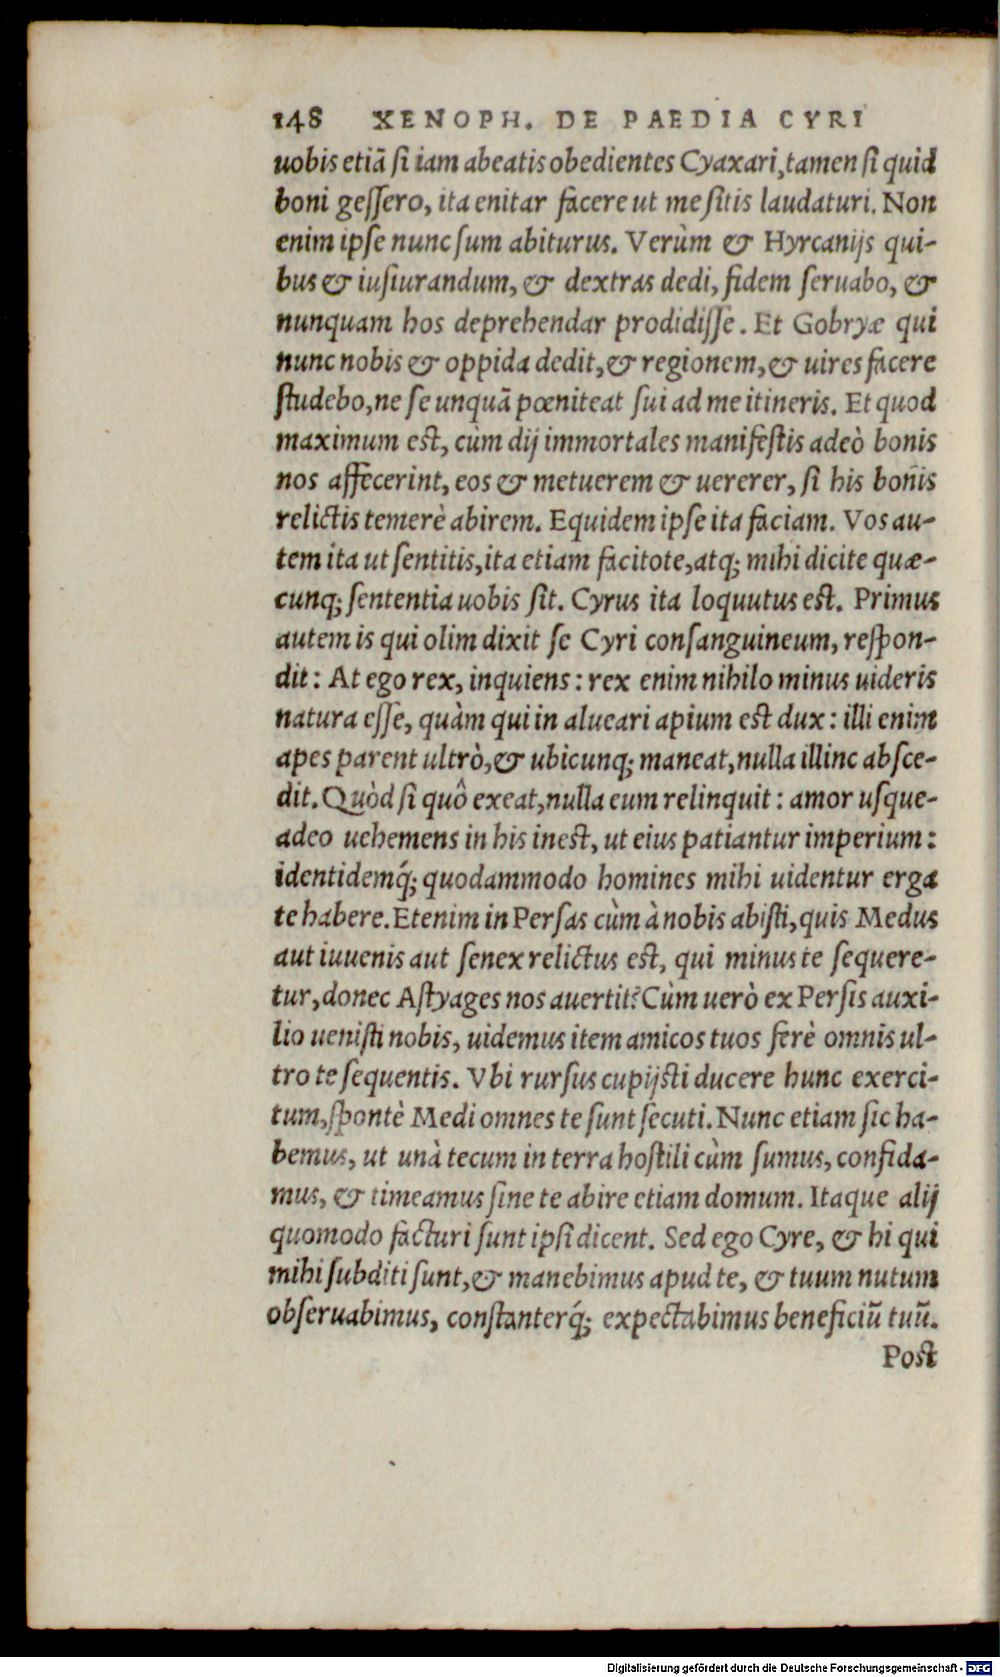 148 XENOPH. DE PAEDIA CYRI
uobis etiã si iam abeatis obedientes Cyaxari, tamen si quid
boni gessero, ita enitar facere ut me sitis laudaturi. Non
enim ipse nunc sum abiturus. Verùm & Hyrcanijs qui-
bus & iusiurandum, & dextras dedi, fidem seruabo, &
nunquam hos deprehendar prodidisse. Et Gobryæ qui
nunc nobis & oppida dedit, & regionem, & uires facere
studebo, ne se unquã pœniteat sui ad me itineris. Et quod
maximum est, cùm dij immortales manifestis adeò bonis
nos affecerint, eos & metuerem & uererer, si his bonis
relictis temerè abirem. Equidem ipse ita faciam. Vos au-
tem ita ut sentitis, ita etiam facitote, atq; mihi dicite quæ-
cunq; sententia uobis sit. Cyrus ita loquutus est. Primus
autem is qui olim dixit se Cyri consanguineum, respon-
dit: At ego rex, inquiens: rex enim nihilo minus uideris
natura esse, quàm qui in alueari apium est dux: illi enim
apes parent ultrò, & ubicunq; maneat, nulla illinc absce-
dit. Quòd si quô exeat, nulla eum relinquit: amor usque-
adeo uehemens in his inest, ut eius patiantur imperium:
identidemq́; quodammodo homines mihi uidentur erga
te habere. Etenim in Persas cùm à nobis abisti, quis Medus
aut iuuenis aut senex relictus est, qui minus te sequere-
tur, donec Astyages nos auertit? Cùm uerò ex Persis auxi-
lio uenisti nobis, uidemus item amicos tuos ferè omnis ul-
tro te sequentis. Vbi rursus cupijsti ducere hunc exerci-
tum, spontè Medi omnes te sunt secuti. Nunc etiam sic ha-
bemus, ut unà tecum in terra hostili cùm sumus, confida-
mus, & timeamus sine te abire etiam domum. Itaque alij
quomodo facturi sunt ipsi dicent. Sed ego Cyre, & hi qui
mihi subditi sunt, & manebimus apud te, & tuum nutum
obseruabimus, constanterq́; expectabimus beneficiũ tuũ.
Post
Digitalisierung gefördert durch die Deutsche Forschungsgemeinschaft - DFG